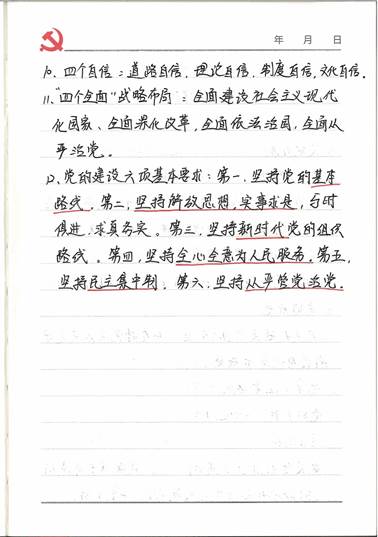 年 月 日
10、四个自信：道路自信，理论自信，制度自信，文化自信。
11、"四个全面"战略布局：全面建设社会主义现代
化国家、全面深化改革，全面依法治国，全面从
严治党。
12、党的建设六项基本要求：第一，坚持党的基本
路线。第二，坚持解放思想，实事求是，与时
俱进，求真务实。第三，坚持新时代党的组织
路线。第四，坚持全心全意为人民服务。第五，
坚持民主集中制；第六，坚持从严管党治党。